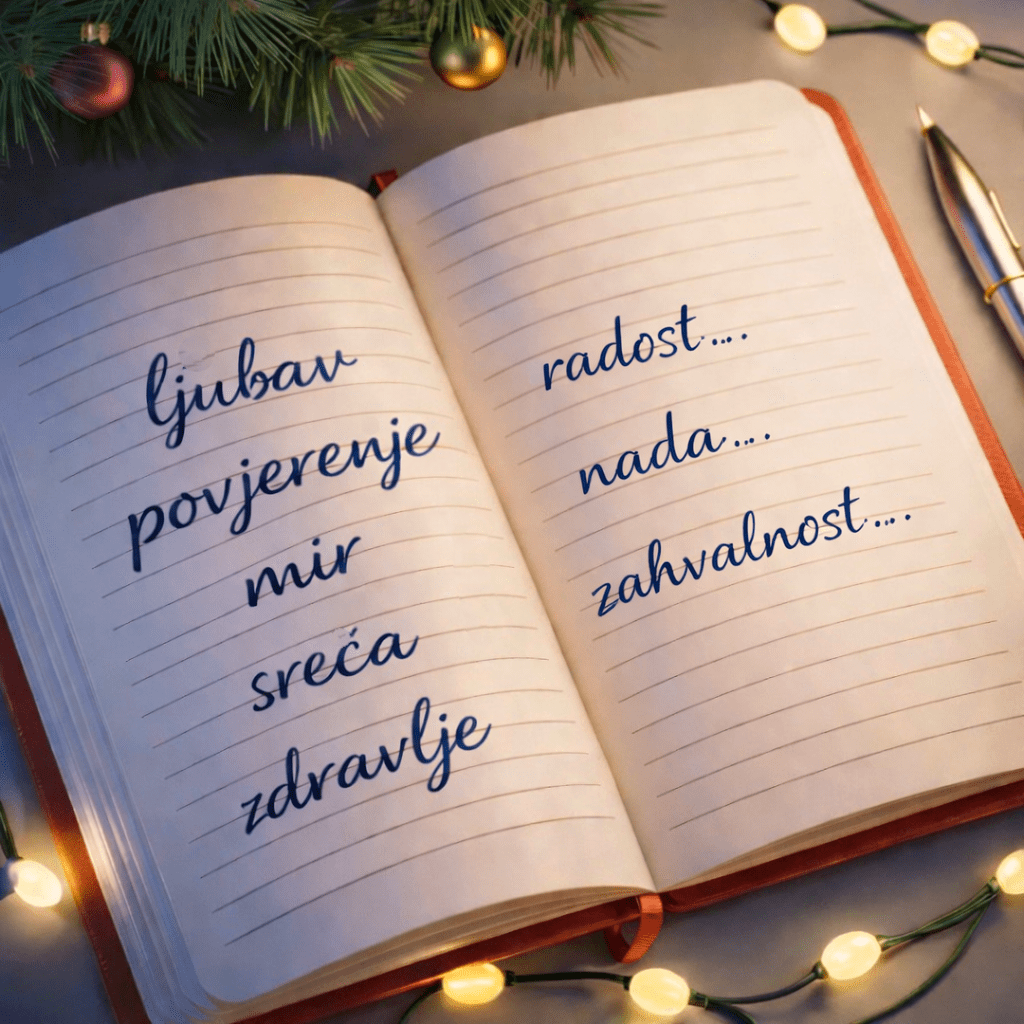 ljubav
povjerenje
mir
sreća
zdravlje
radost....
nada....
zahvalnost....